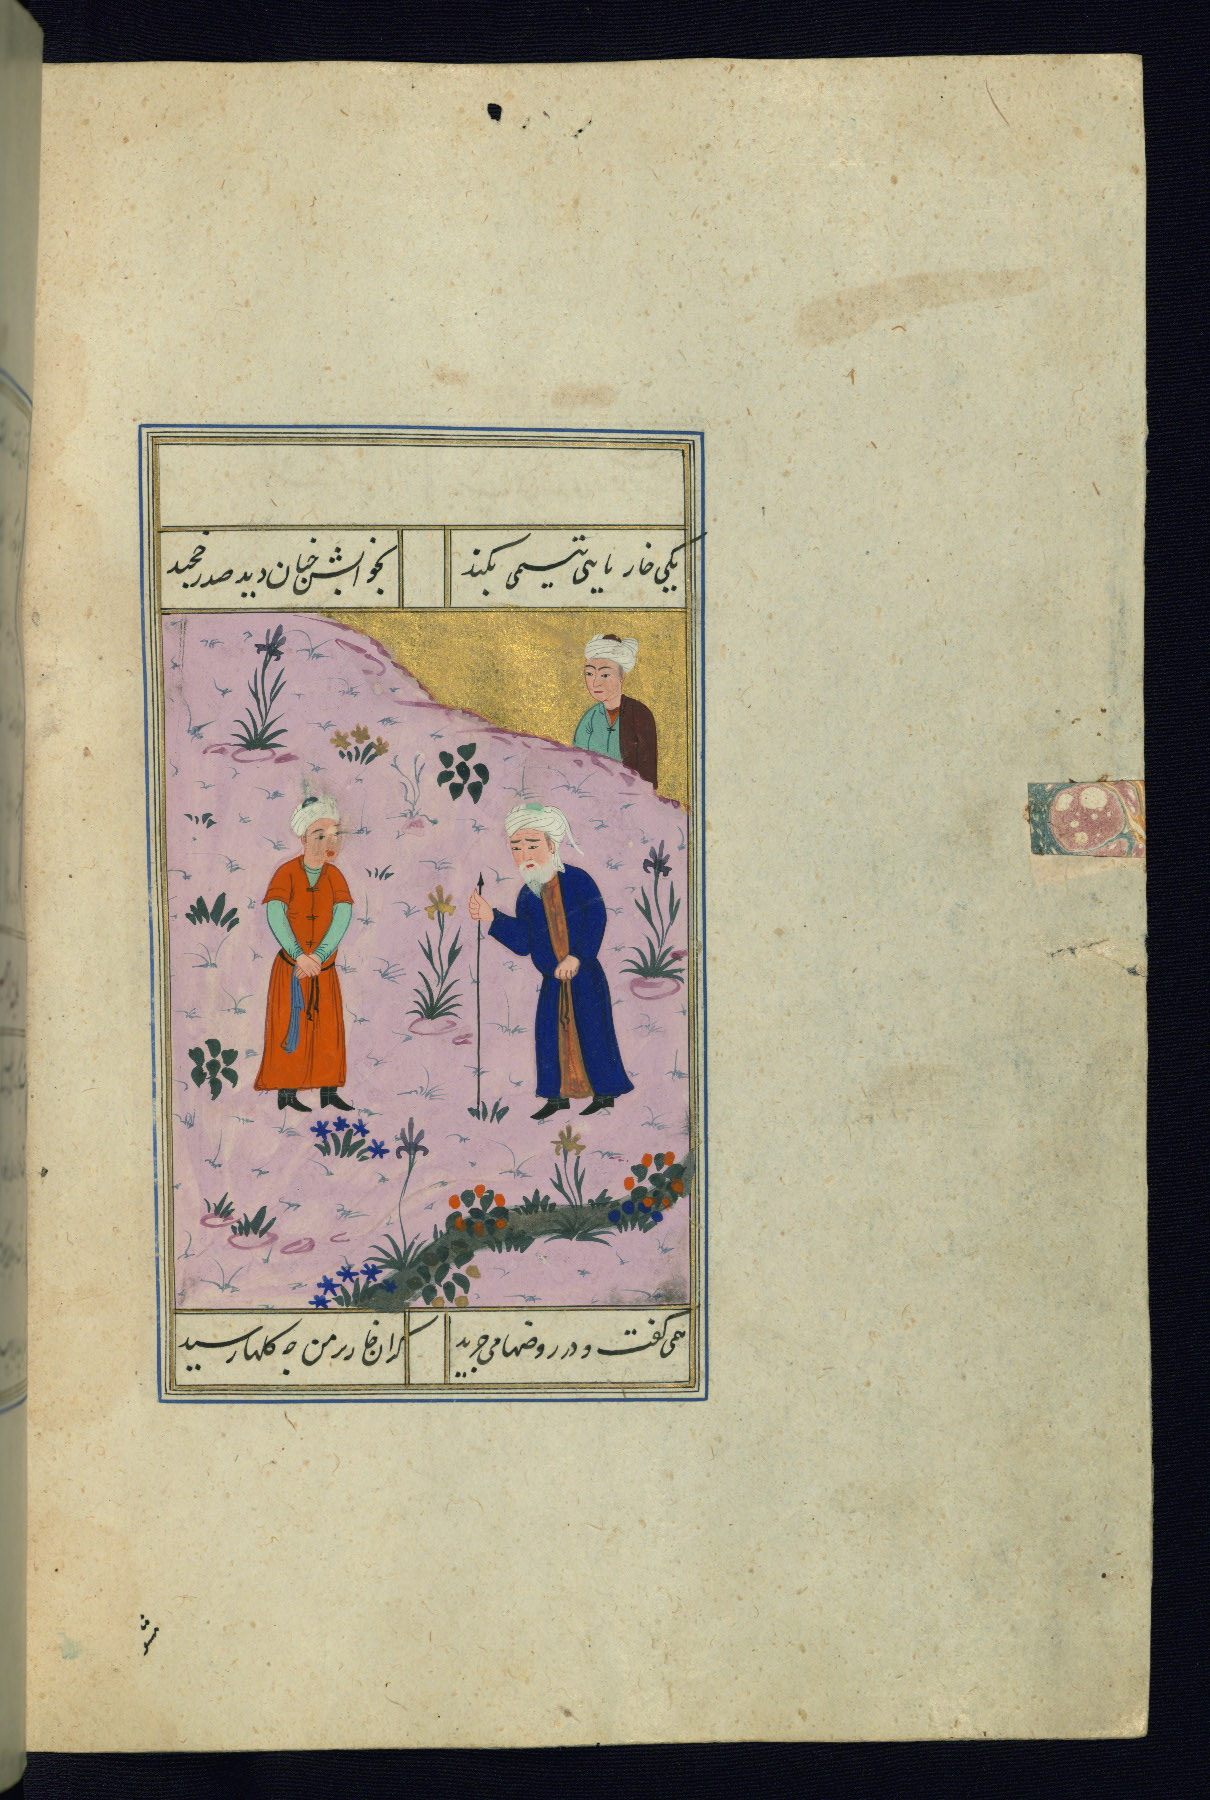 یکی خار پای یتیمی بکند
بخواب اندرش دید صدر خجند
همی گفت و در روضها می چمید
کزان خار بر من چه گلها دمید